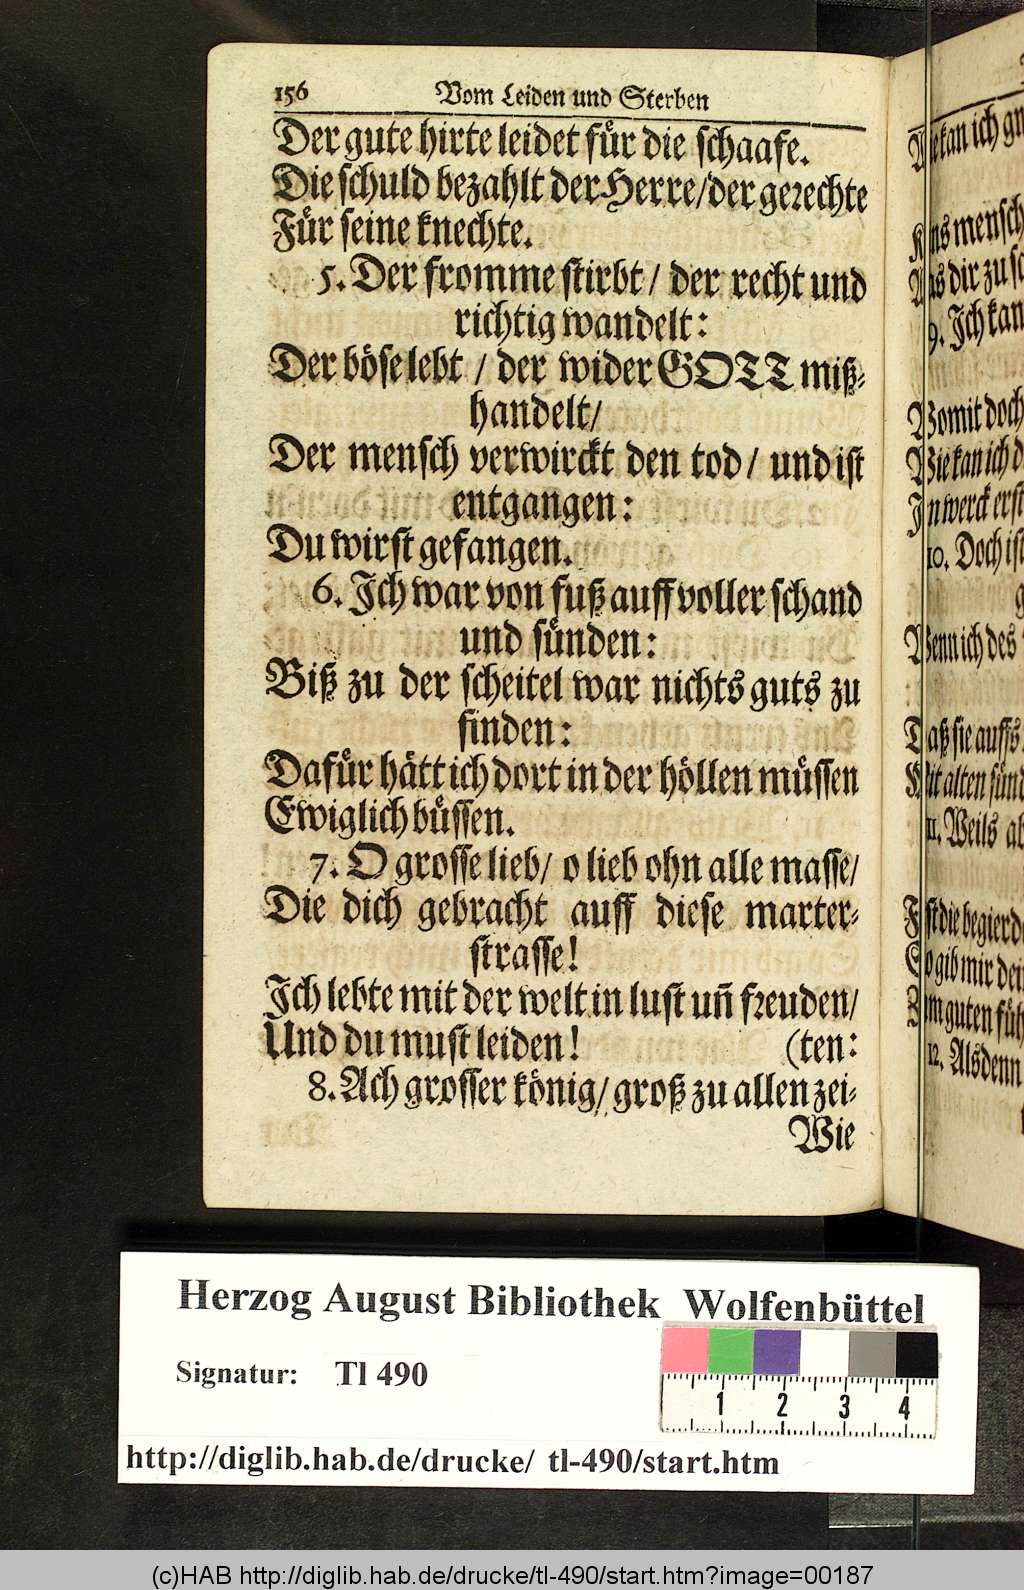 156 Vom Leiden und Sterben
Der gute hirte leidet für die schaafe.
Die schuld bezahlt der Herre/der gerechte
Für seine knechte.
5. Der fromme stirbt / der recht und
richtig wandelt:
Der böse lebt / der wider GOTT miß-
handelt/
Der mensch verwirckt den tod / und ist
entgangen:
Du wirst gefangen.
6. Ich war von fuß auff voller schand
und sünden:
Biß zu der scheitel war nichts guts zu
finden:
Dafür hätt ich dort in der höllen müssen
Ewiglich büssen.
7. O grosse lieb/ o lieb ohn alle masse/
Die dich gebracht auff diese marter-
strasse!
Ich lebte mit der welt in lust uñ freuden/
Und du must leiden! (ten:
8. Ach grosser könig/ groß zu allen zei-
Wie
kan ich
mensch
dir zu
9. Ich kan
Womit doch
Wie kan ich
In werck erst
10. Doch ist
Wenn ich des
Daß sie auffs
Mit alten sünd
11. Weils
Ist die begierd
So gib mir dei
Zum guten füh
12. Alsdenn
Herzog August Bibliothek Wolfenbüttel
Signatur: Tl 490
1 2 3 4
http://diglib.hab.de/drucke/ tl-490/start.htm
(c)HAB http://diglib.hab.de/drucke/tl-490/start.htm?image=00187